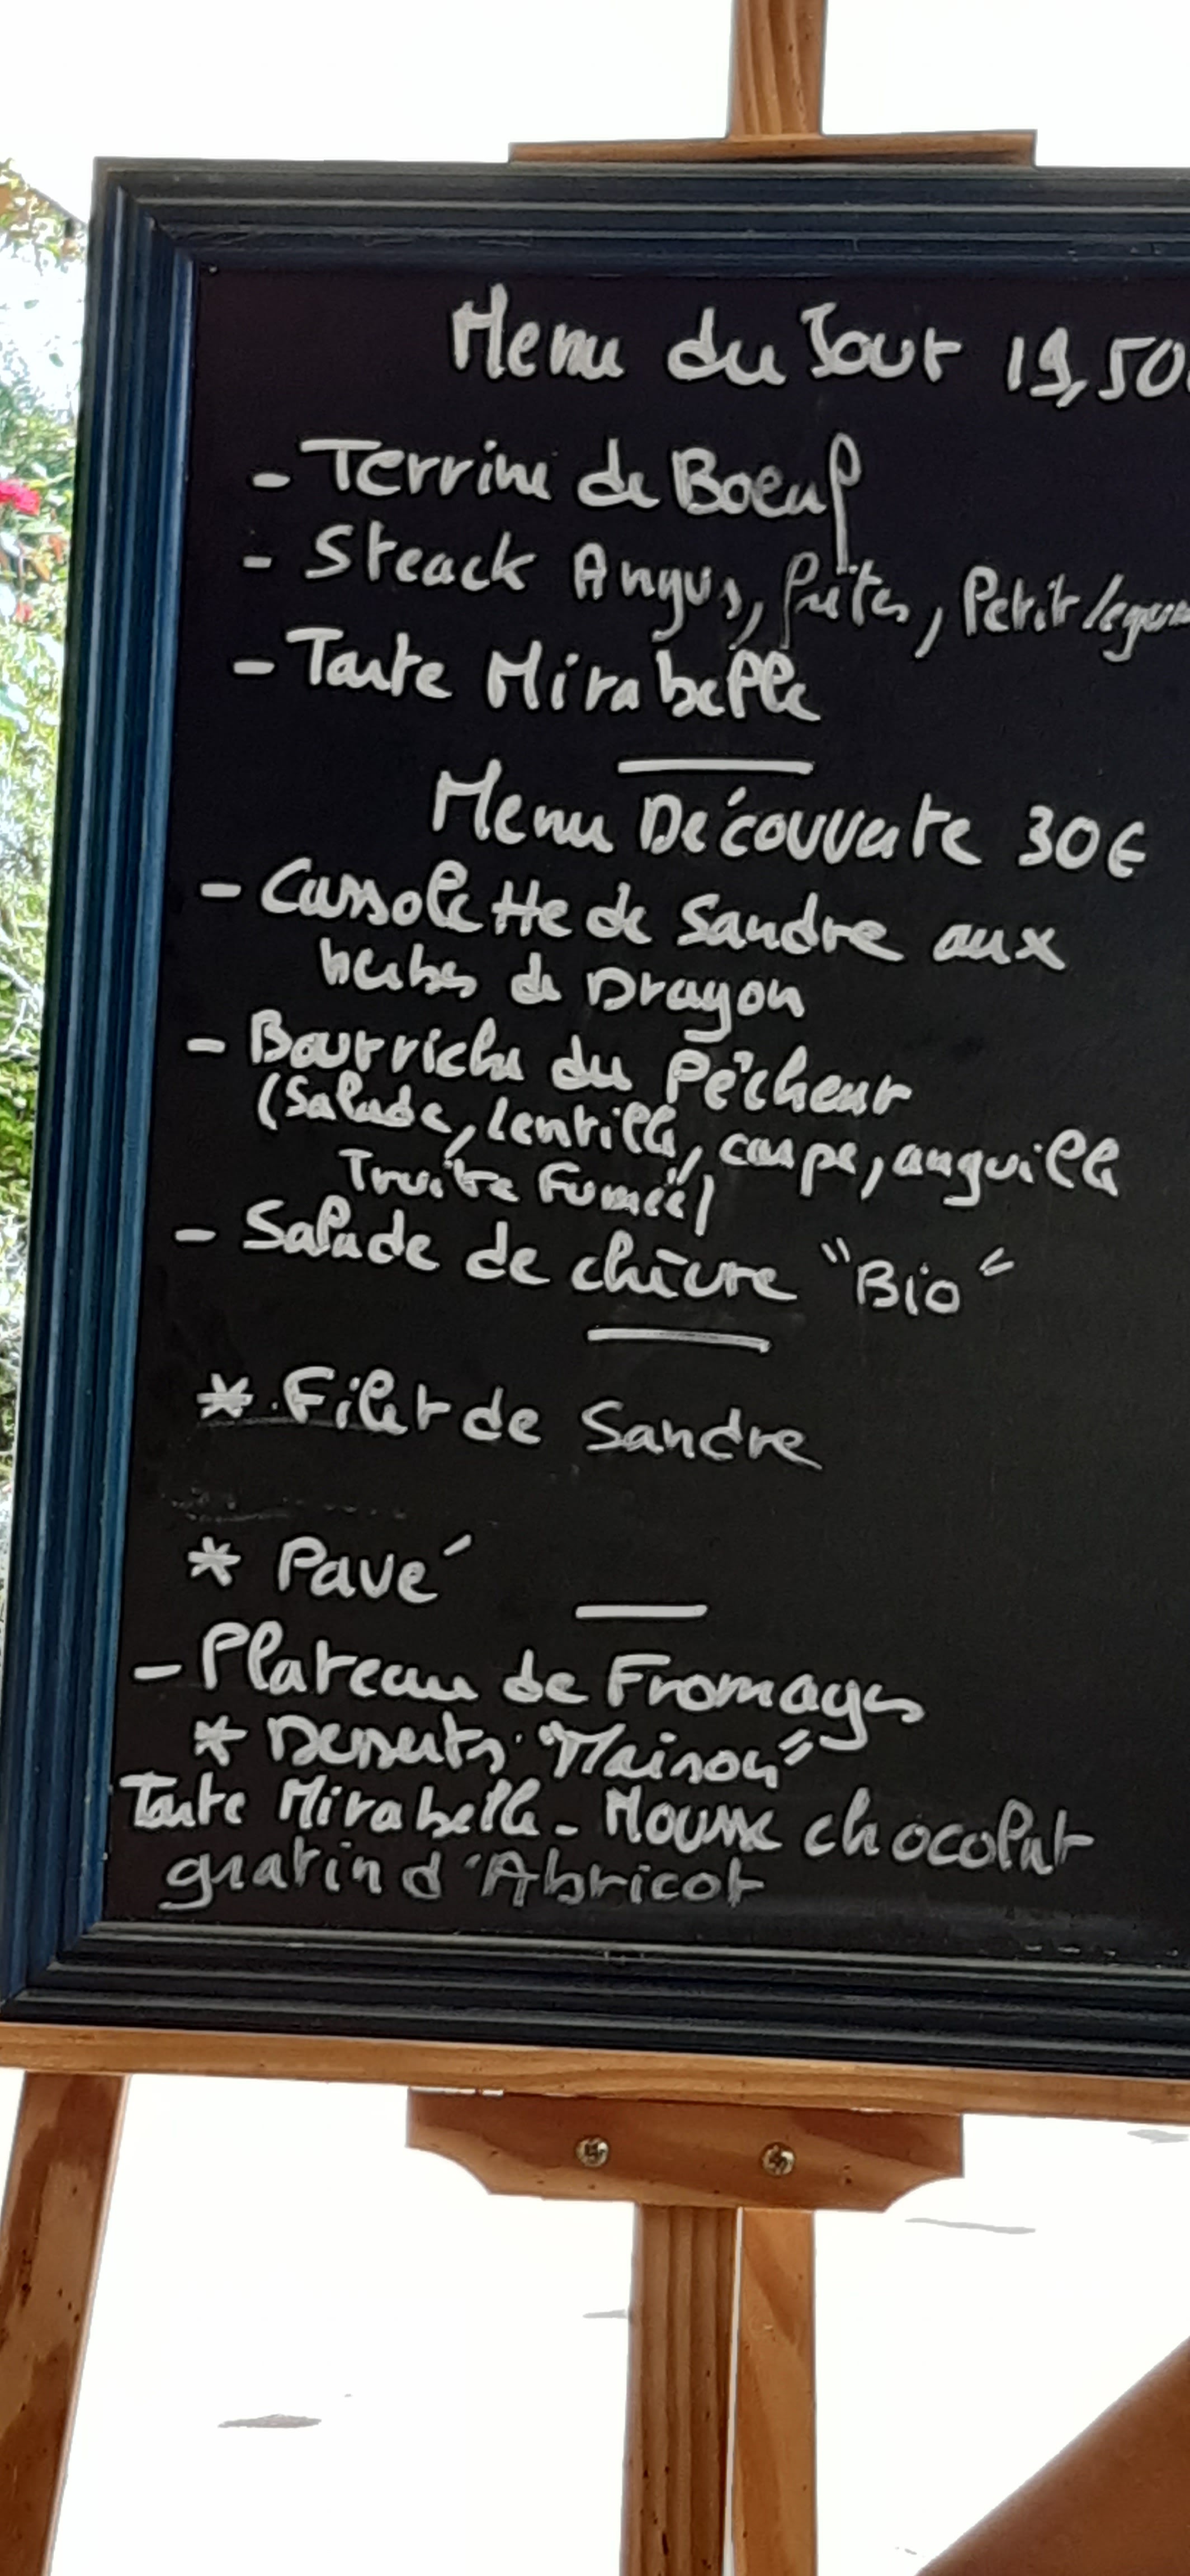 Menu du Jour 19,50
- Terrine de Boeuf
- Steack Angus, frites, Petit legum
- Tarte Mirabelle
Menu Découverte 30€
- Cassolette de Sandre aux
herbes de Dragon
- Bourriche du Pêcheur
(Salade, lentille, carpe, anguille
Truite Fumée)
- Salade de chèvre "Bio"
* Filet de Sandre
* Pavé
- Plateau de Fromages
* Desserts "Maison"
Tarte Mirabelle - Mousse chocolat
gratin d'Abricot